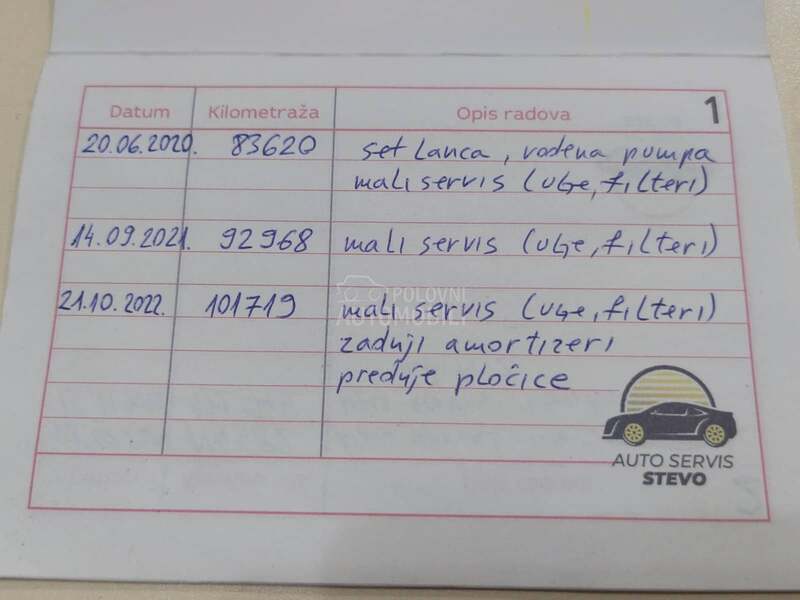 Datum Kilometraža Opis radova 1
20.06.2020. 83620 set lanca, vodena pumpa
mali servis (ulje, filteri)
14.09.2021. 92968 mali servis (ulje, filteri)
21.10.2022. 101719 mali servis (ulje, filteri)
zadnji amortizeri
prednje pločice
POLOVNI
AUTOMOBILI
AUTO SERVIS
STEVO